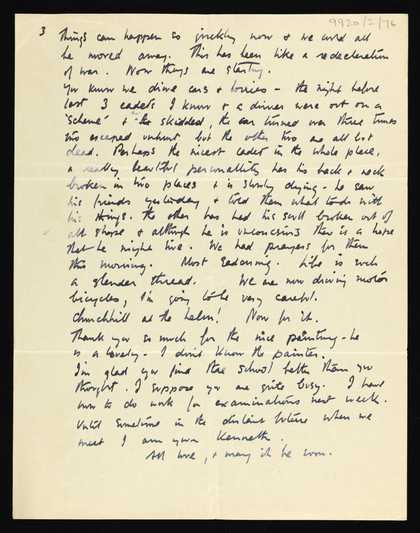 9920/2/76
3 Things can happen so quickly now & we could all
be moved away. This has been like a redeclaration
of war. Now things are starting.
You know we drive cars & lorries – the night before
last 3 cadets I know & a driver were out on a
'scheme' & skidded, the car turned over three times
two escaped unhurt but the other two are all but
dead. Perhaps the nicest cadet in the whole place,
a really beautiful personality has his back & neck
broken in two places & is slowly dying – he saw
his friends yesterday & told them what to do with
his things. The other has had his scull broken out of
all shape & although he is unconscious there is a hope
that he might live. We had prayers for them
this morning. Most saddening. Life is such
a slender thread. We are now driving motor
bicycles, I'm going to be very careful.
Churchill at the helm! Now for it.
Thank you so much for the nice painting – he
is a lovely – I didn't know the painter.
I'm glad you find the school better than you
thought. I suppose you are quite busy. I have
now to do work for examinations next week.
Until sometime in the distant future when we
meet I am your Kenneth.
All love, & may it be soon.